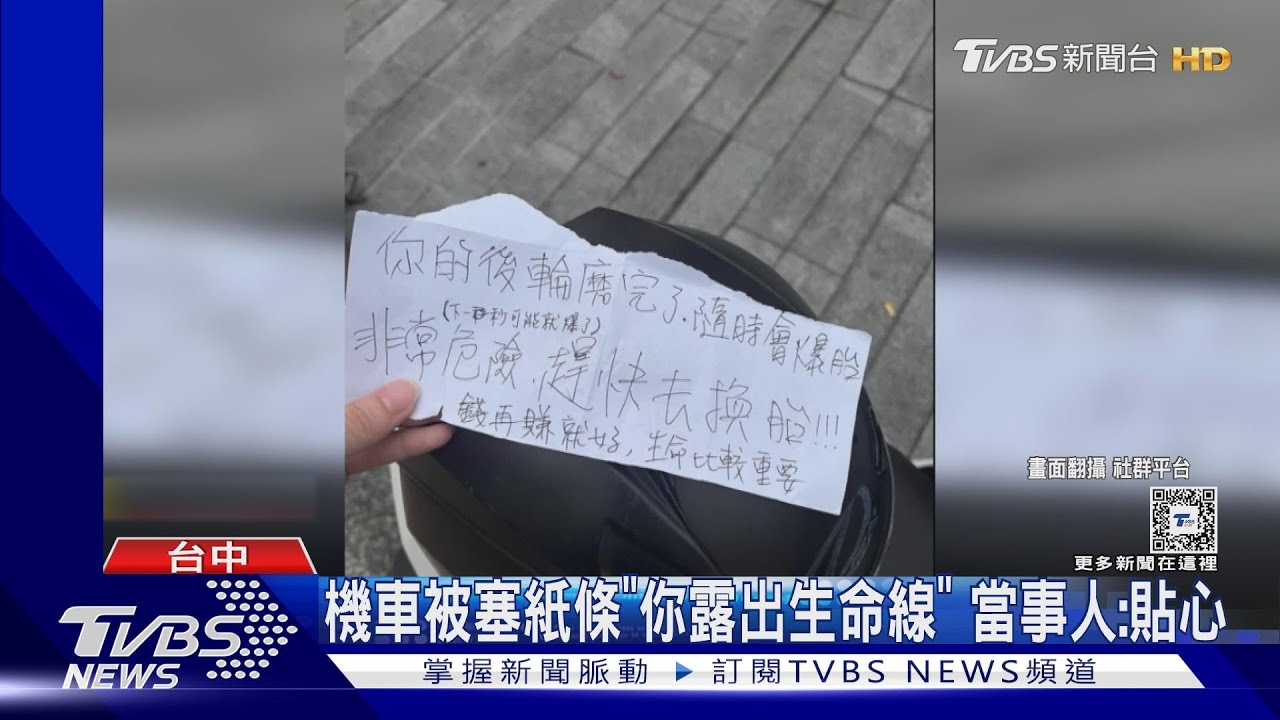 TVBS新聞台 HD
你的後輪磨完了.隨時會爆胎
(下一秒可能就爆了)
非常危險.趕快去換胎!!!
錢再賺就好,生命比較重要
畫面翻攝 社群平台
TVBS
更多新聞在這裡
台中
機車被塞紙條"你露出生命線" 當事人:貼心
TVBS
NEWS
掌握新聞脈動 ▶ 訂閱TVBS NEWS頻道